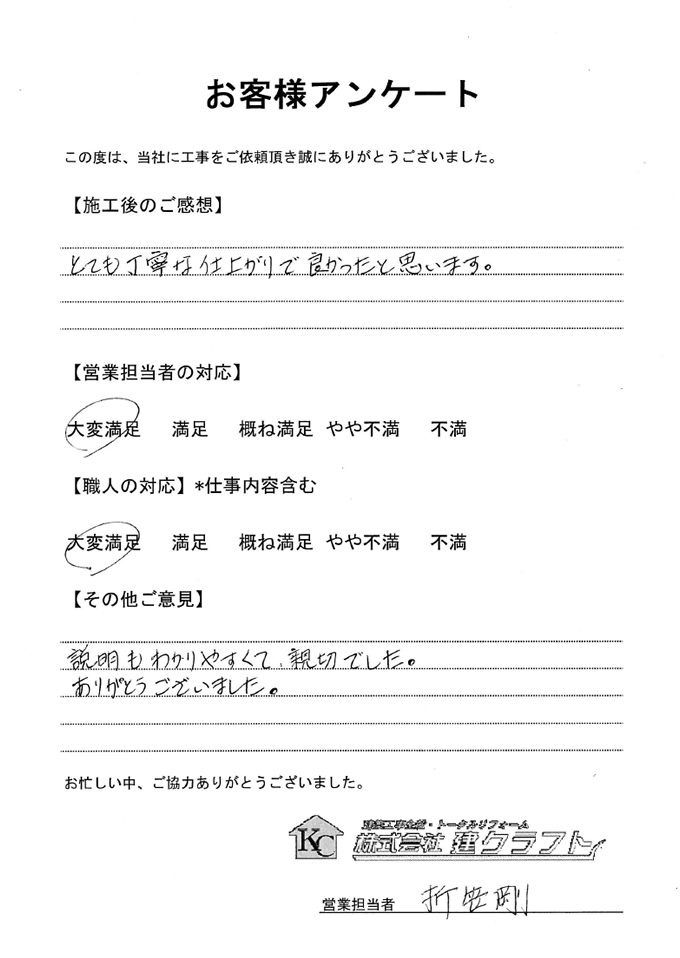 お客様アンケート
この度は、当社に工事をご依頼頂き誠にありがとうございました。
【施工後のご感想】
とても丁寧な仕上がりで良かったと思います。
【営業担当者の対応】
大変満足 満足 概ね満足 やや不満 不満
【職人の対応】*仕事内容含む
大変満足 満足 概ね満足 やや不満 不満
【その他ご意見】
説明もわかりやすくて、親切でした。
ありがとうございました。
お忙しい中、ご協力ありがとうございました。
建築工事全般・トータルリフォーム
KC 株式会社 建クラフト
営業担当者 折笠剛